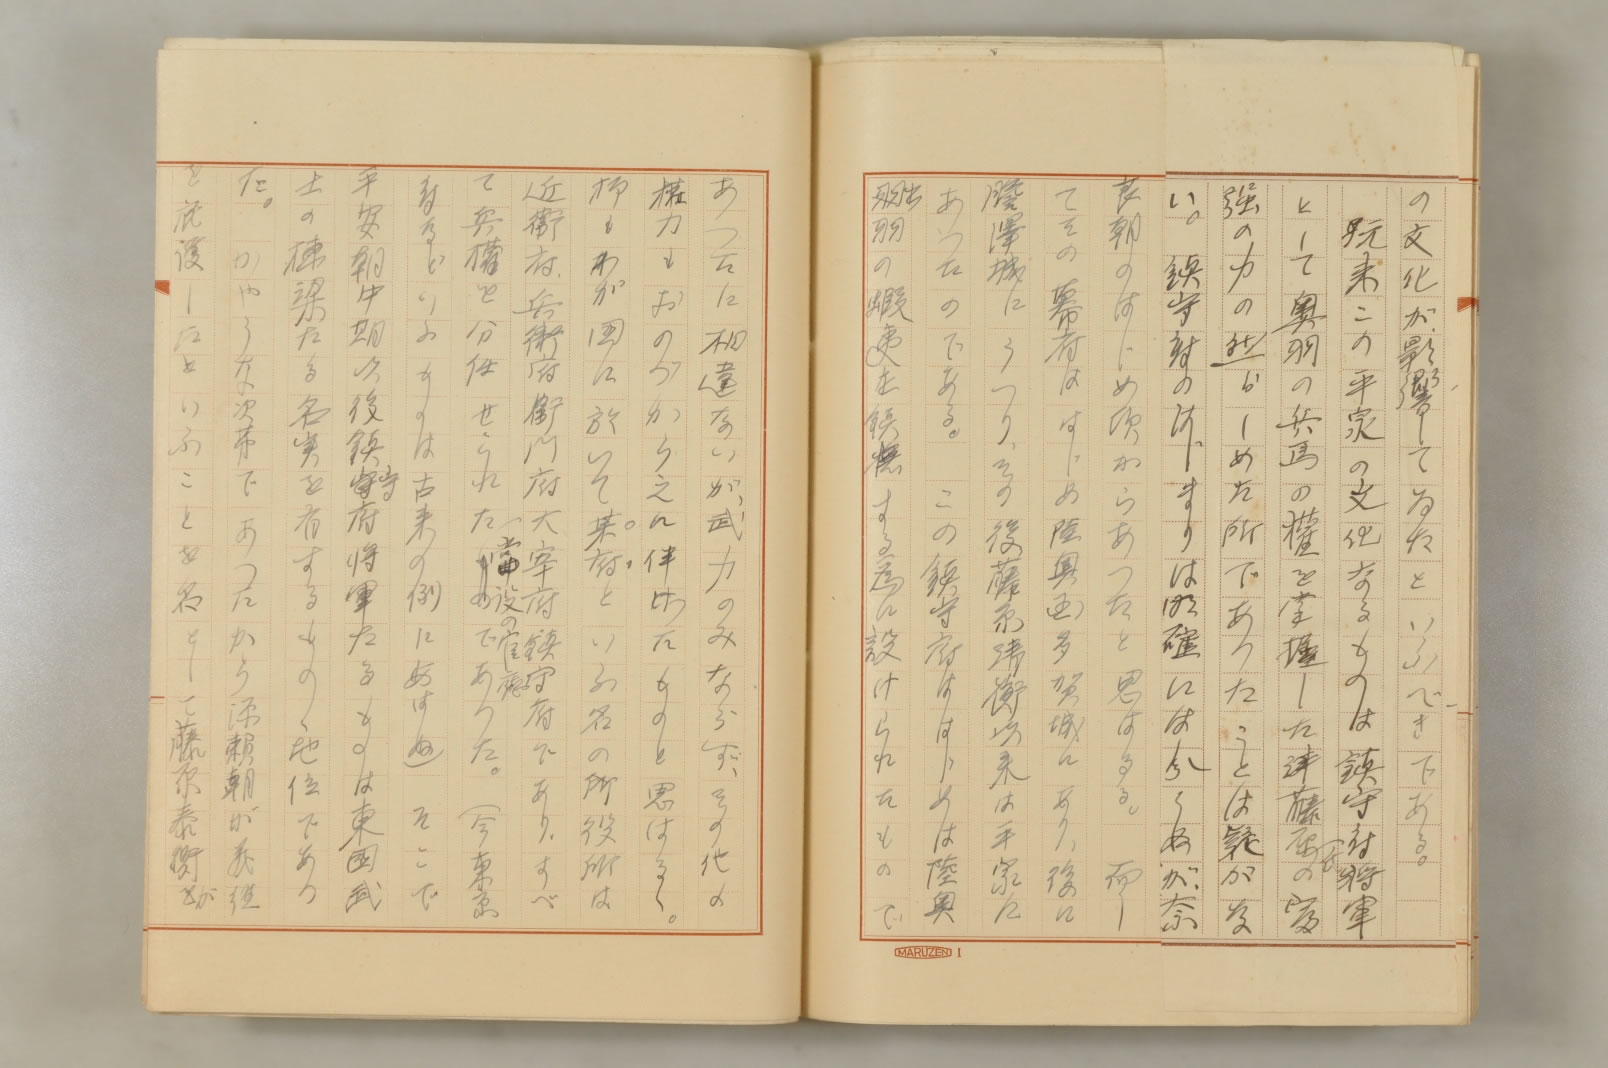 の文化が影響してゐたといふべきである。
元来この平泉の文化なるものは鎮守府将軍
として奥羽の兵馬の権を掌握した藤原氏の富
強の力の然らしめた所であつたことは疑がな
い。鎮守府のはじまりは明確には分らぬが、奈
良朝のはじめ頃からあつたと思はるる。而し
てその幕府ははじめ陸奥国多賀城にあり、後に
膽澤城にうつり、その後藤原清衡以来は平泉に
あつたのである。この鎮守府ははじめは陸奥
出羽の蝦夷を鎮撫する為に設けられたもので
あつたに相違ないが、武力のみならず、その他の
権力もおのづから之に伴つたものと思はるる。
抑もわが国に於いて某府といふ名の所役所は
近衛府、兵衛府衛門府大宰府鎮守府であり、すべ
て兵権と分任せられた常設の官庁であつた。(今東京
府などいふものは古来の例にあはぬ)そこで
平安朝中期以後鎮守府将軍たるものは東国武
士の棟梁たる名実を有するものの地位であつ
た。かやうな次第であつたから源頼朝が義経
を庇護したといふことを名として藤原泰衡が
MARUZEN 1